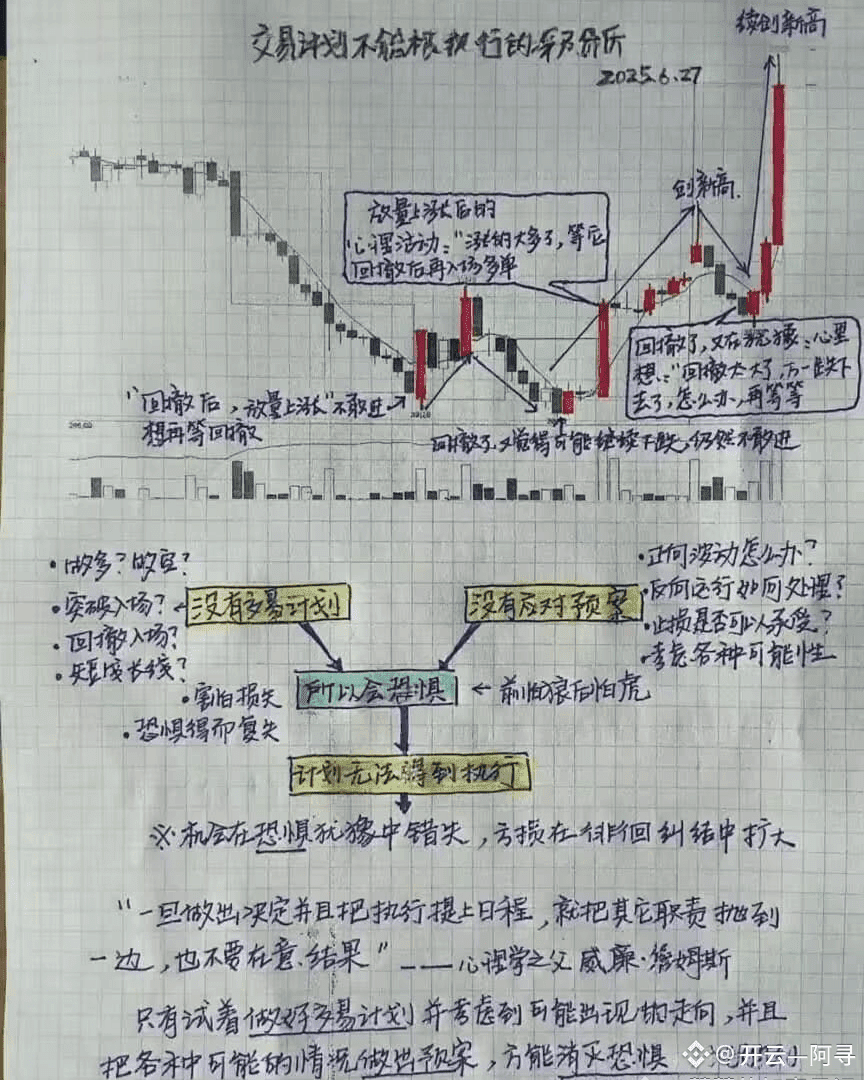 续创新高
交易计划不能被执行的
2025.6.27
创新高.
放量上涨后的
心理活动:“涨的太多了,等它
回撤后再入场多单
回撤了,又在犹豫:心里
想:“回撤太大了,万一跌下
去了,怎么办,再等等
“回撤后,放量上涨”不敢进
想再等回撤
回撤了,又觉得可能继续下跌,仍然不敢进
·做多?做空?
·突破入场?
·回撤入场?
·短线长线?
没有交易计划
没有应对预案
·正向波动怎么办?
·反向运行如何处理?
·止损是否可以承受?
·考虑各种可能性
·害怕损失
·恐惧得而复失
所以会恐惧
前怕狼后怕虎
计划无法得到执行
※机会在恐惧犹豫中错失,亏损在徘徊纠结中扩大
“一旦做出决定并且把执行提上日程,就把其它职责抛到
一边,也不要在意结果”——心理学之父 威廉·詹姆斯
只有试着做好交易计划并考虑到可能出现的走向,并且
把各种可能的情况做出预案,方能消灭恐惧
@开云—阿寻